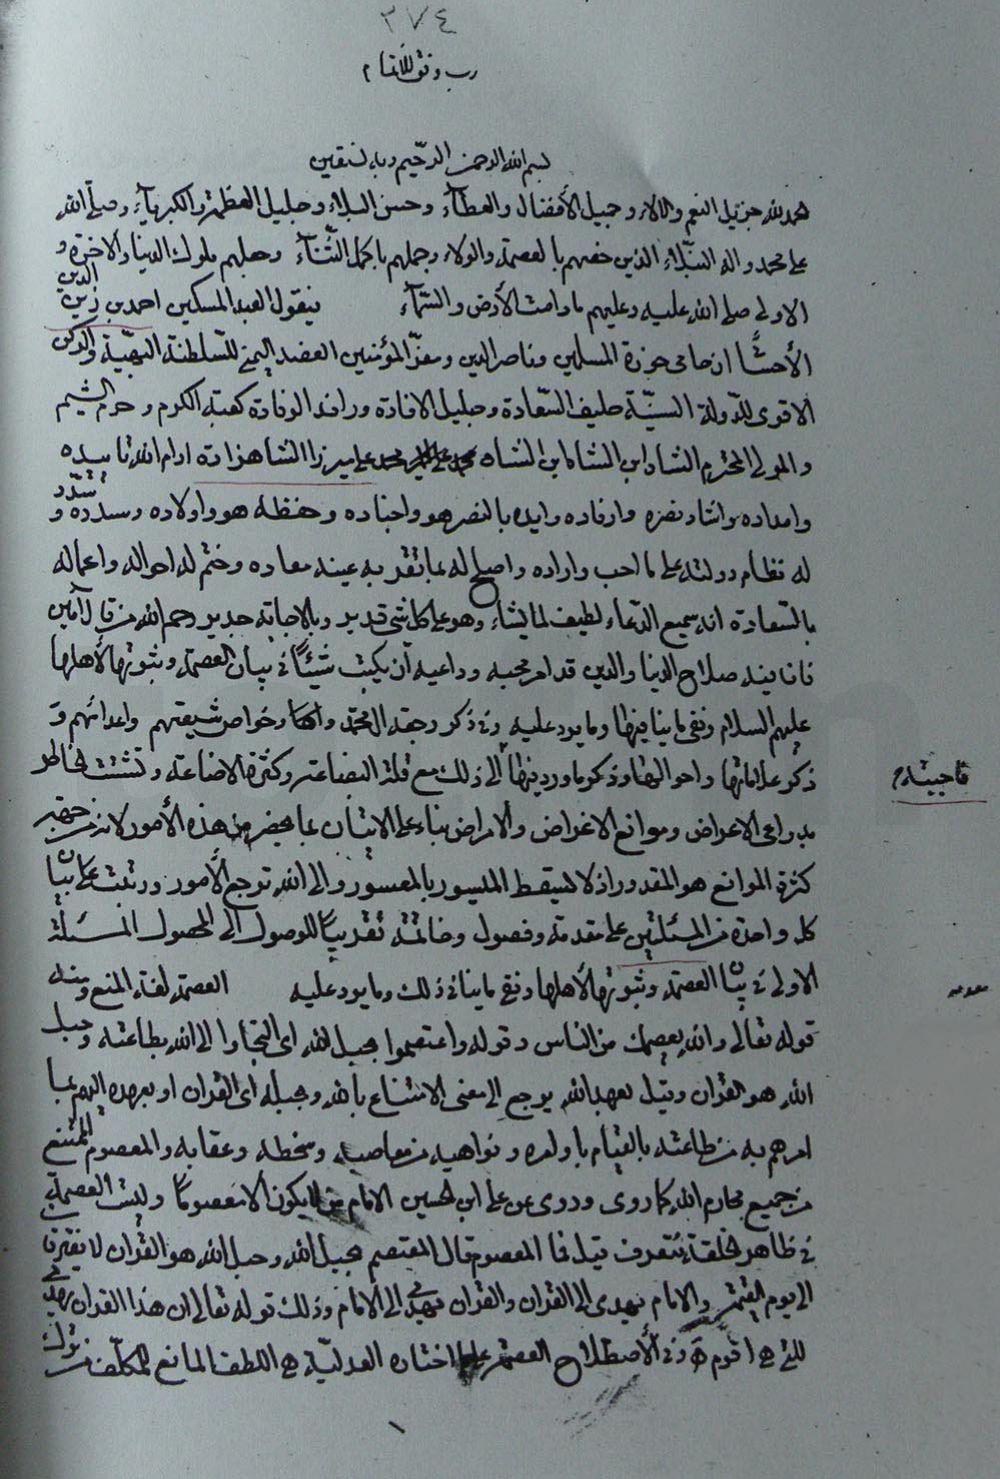 ٢٧٤
رب وفق للاتمام
بسم الله الرحمن الرحيم وبه نستعين
الحمد لله جزيل النعم والالاء وجميل الأفضال والعطآء وحسن البلاء وجليل العظمة والكبريآء وصلى الله
على محمد واله النبلاء الذين خصهم بالعصمة والولاء وجملهم باكمل الثناء وجعلهم ملوك الدنيا والاخرة و
الاولى صلى الله عليه وعليهم ما دامت الأرض والسمآء فيقول العبد المسكين احمد بن زين الدين
الأحسائى ان حامى حوزة المسلمين وناصر الدين ومعز المؤمنين العضد اليمنى للسلطنة البهية والركن
الاقوى للدولة السنية حليف السعادة وجليل الافادة ورافد الوفادة كعبة الكرم وحرم الشيم
والمولى المحترم الشاه ابن الشاه ابن الشاه محمد على ميرزا الشاهزاده ادام الله تاييده
وامداده وانشاد نصره وارفاده وايده بالنصر هو واجناده وحفظه هو واولاده وسدده وشدد
له نظام دولته على ما احب واراده واصلح له ما تقر به عينه معاده وختم له احواله واعماله
بالسعادة انه سميع الدعاء لطيف لما يشاء وهو على كل شئ قدير وبالاجابة جدير رحم الله من قال آمين
فان فيه صلاح الدنيا والدين قد امر محبه وداعيه ان يكتب شيئا فى بيان العصمة وثبوتها لأهلها
عليهم السلام ونفى ما ينافيها وما يرد عليه وفى ذكر رجعة ال محمد واهلها وخواص شيعتهم واعدائهم و
ذكر علاماتها واحوالها وذكر ما ورد فيها الى ذلك مع قلة البضاعة وكثرة الاضاعة وتشتت الخاطر
فاجبته م
بدواعى الاعراض وموانع الاغراض والامراض بناء على الاتيان بما يحضر من هذه الأمور لانه من جهة
كثرة الموانع هو المقدور اذ لا يسقط الميسور بالمعسور والى الله ترجع الأمور ورتبت على بيان
كل واحدة من المسئلتين على مقدمة وفصول وخاتمة تقريبا للوصول الى المحصول المسئلة
الاولى فى بيان العصمة وثبوتها لأهلها ونفى ما ينافى ذلك وما يرد عليه العصمة لغة المنع ومنه
مقدمه
قوله تعالى والله يعصمك من الناس وقوله واعتصموا بحبل الله اى التجاوا الى الله بطاعته وحبل
الله هو القران وقيل بعهد الله يرجع الى معنى الامتناع بالله وبحبله اى القران او بعهده اليهم بما
امرهم به من طاعته بالقيام باوامره ونواهيه من معاصيه وسخطه وعقابه والمعصوم الممتنع
من جميع محارم الله كما روى وروى عن على ابن الحسين الامام منا لا يكون الا معصوما وليست العصمة
فى ظاهر الخلقة فتعرف قيل فما المعصوم قال المعتصم بحبل الله وحبل الله هو القران لا يفترقا
الى يوم القيمة والامام يهدى الى القران والقران يهدى الى الامام وذلك قوله تعالى ان هذا القران يهدى
للتى هى اقوم وفى الأصطلاح العصمة على ما اختاره العدلية هى اللطف المانع للمكلف من ترك